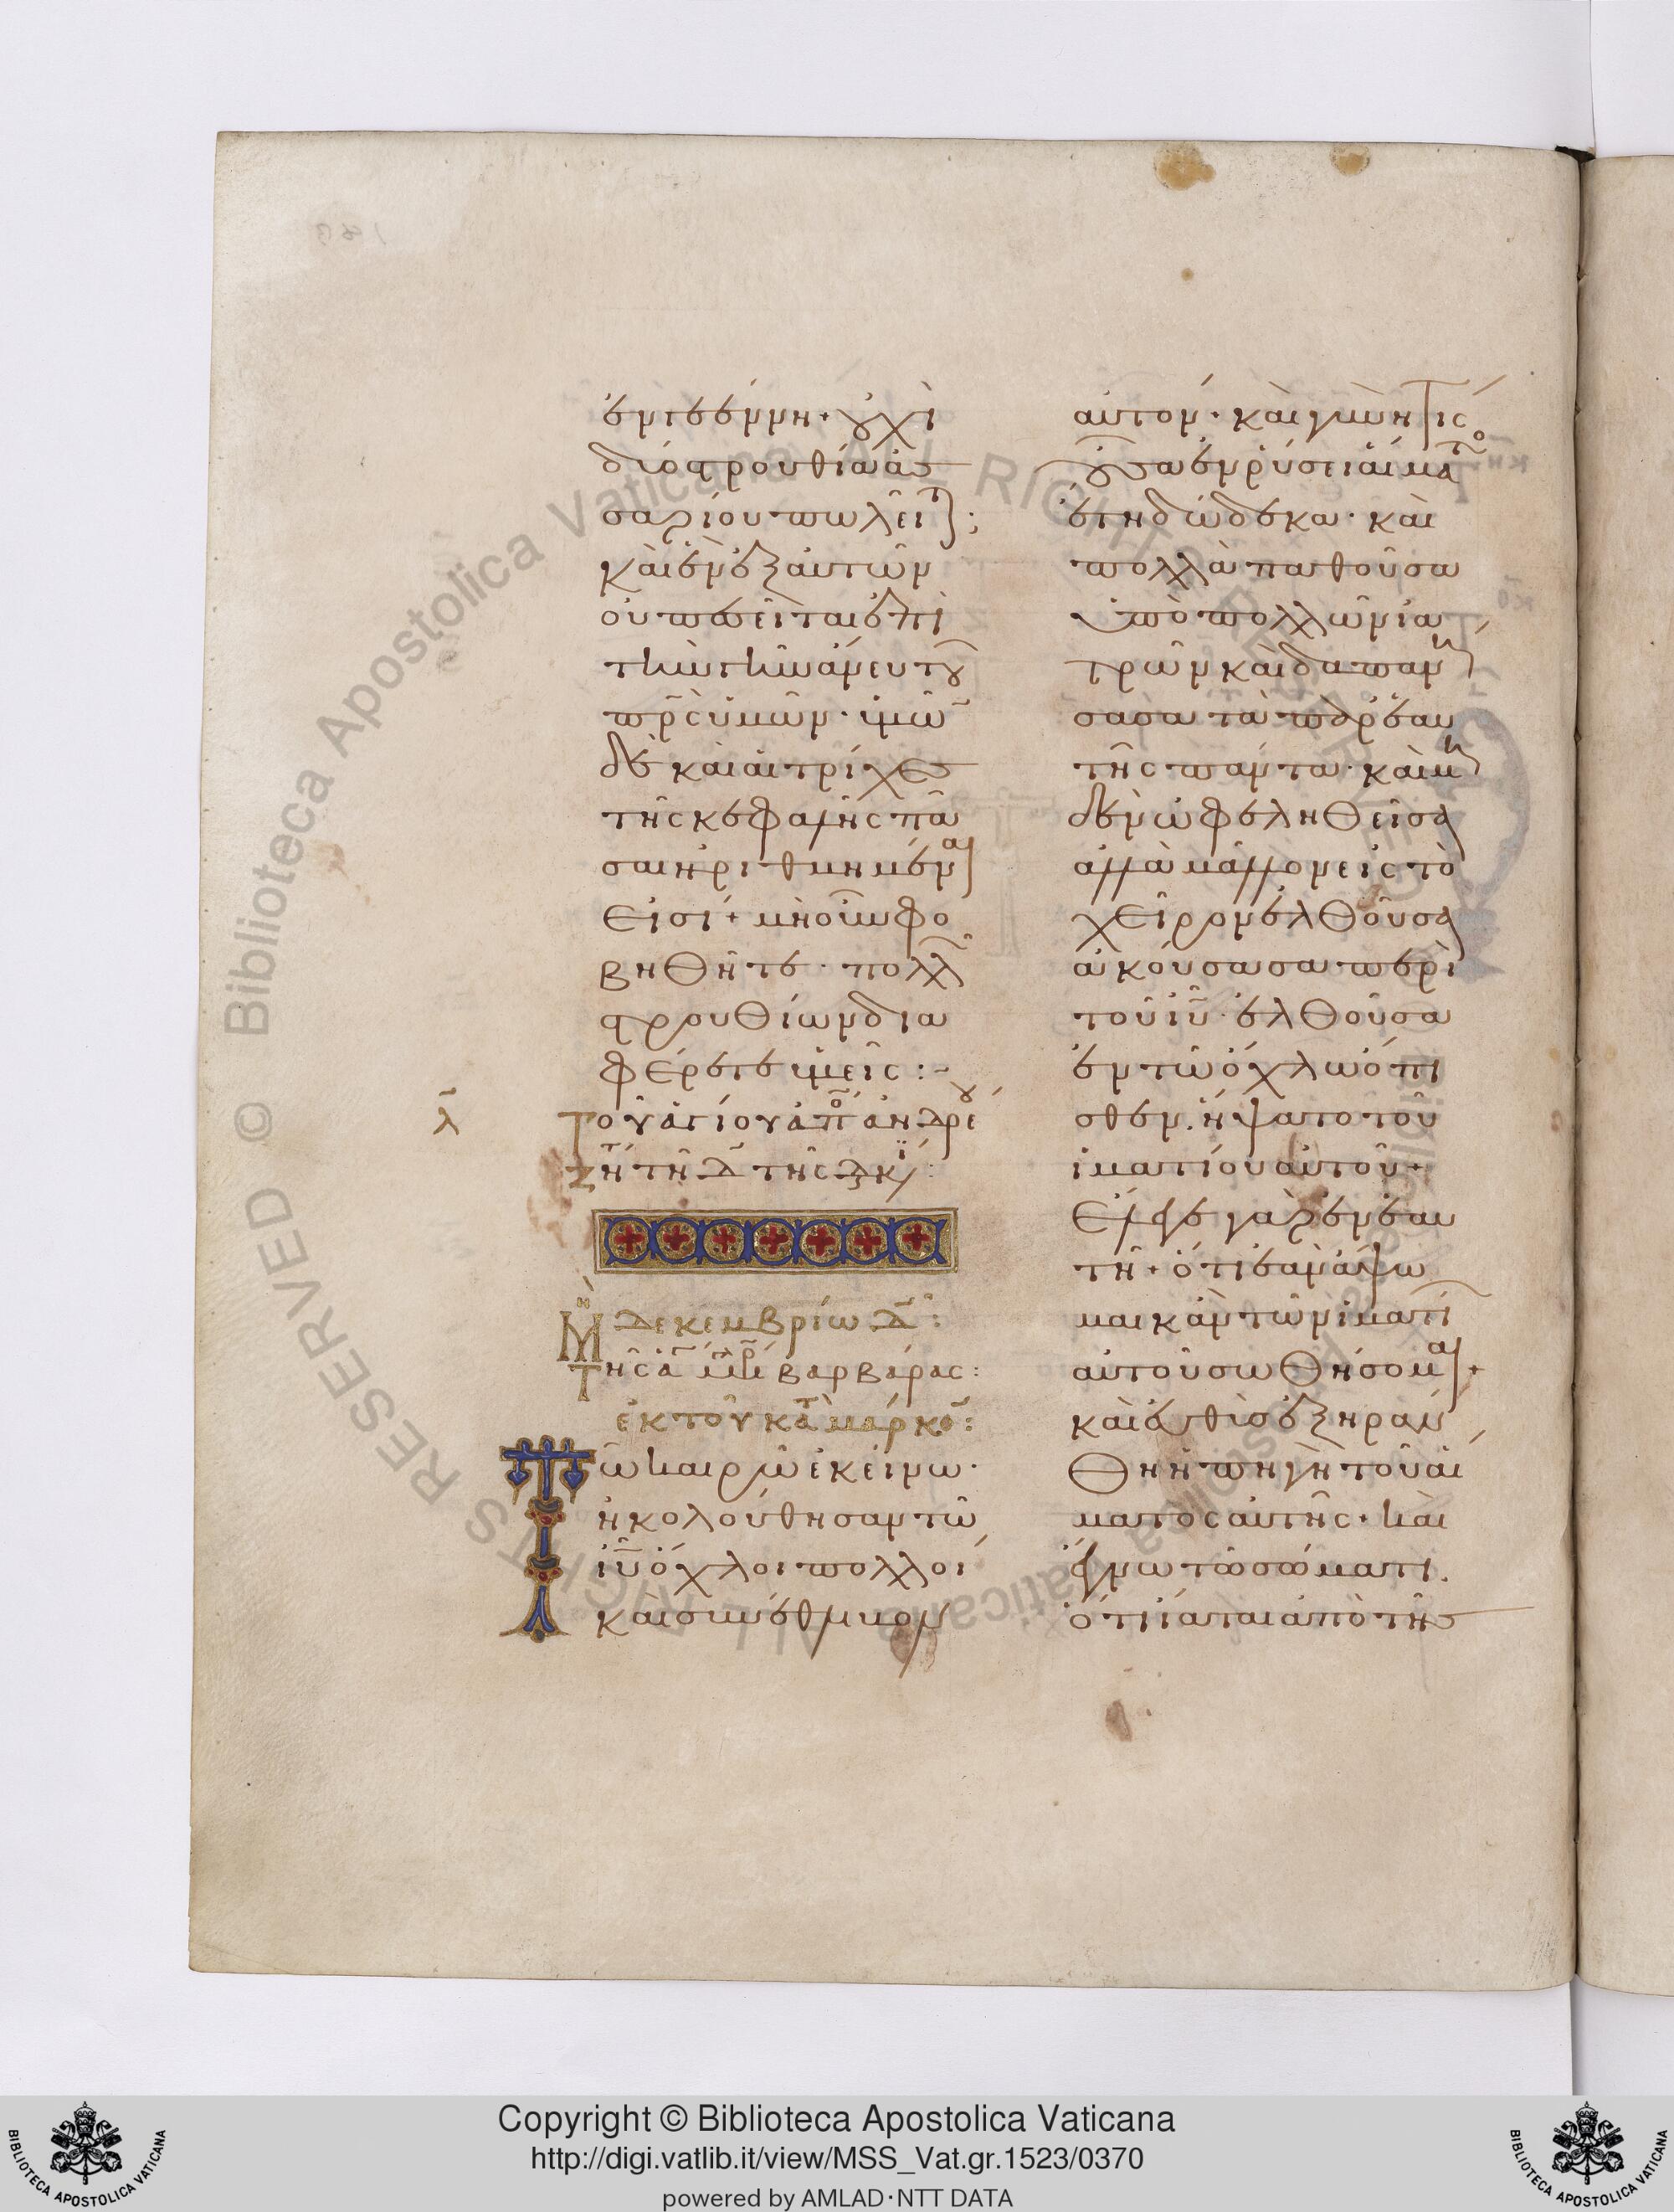 ἐν γεέννη· οὐχὶ
δύο στρουθία ἀσ
σαρίου πωλεῖται;
καὶ ἓν ἐξ αὐτῶν
οὐ πεσεῖται ἐπὶ
τὴν γῆν ἄνευ τοῦ
πρ̅ς ὑμῶν· ὑμῶ̅
δὲ καὶ αἱ τρίχες
τῆς κεφαλῆς πᾶ
σαι ἠριθμημέναι
εἰσί· μὴ οὖν φο
βηθῆτε· πολλῶ̅
στρουθίων δια
φέρετε ὑμεῖς:-
λ̅
Τοῦ ἁγίου ἀπο ἀνδρέου
ζη τῆ δ̅ τῆς δκι:
Μη δεκεμβρίω δ̅:
Τῆς ἁγ μρ βαρβάρας:
ἐκ τοῦ κατὰ μάρκο̅:
Τῶ καιρῶ ἐκείνω·
ἠκολούθησαν τῶ
ιυ̅ ὄχλοι πολλοί
καὶ συνέθλιβον
αὐτόν· καὶ γυνή τις
οὖσα ἐν ῥύσει αἵματο
ἔτη δώδεκα· καὶ
πολλὰ παθοῦσα
ὑπὸ πολλῶν ἰα
τρῶν καὶ δαπανή
σασα τὰ παρ ἑαυ
τῆς πάντα· καὶ μη
δὲν ὠφεληθεῖσα
ἀλλὰ μᾶλλον εἰς τὸ
χεῖρον ἐλθοῦσα
ἀκούσασα περὶ
τοῦ ιυ̅· ἐλθοῦσα
ἐν τῶ ὄχλω ὄπι
σθεν· ἥψατο τοῦ
ἱματίου αὐτοῦ·
Ἔλεγε γὰρ ἐν ἑαυ
τῆ· ὅτι ἐὰν ἅψω
μαι κἂν τῶν ἱματί
αὐτοῦ σωθήσομαι·
καὶ εὐθὺς ἐξηράν
θη ἡ πηγὴ τοῦ αἵ
ματος αὐτῆς· καὶ
ἔγνω τῶ σώματι·
ὅτι ἴαται ἀπὸ τῆς
Copyright © Biblioteca Apostolica Vaticana
http://digi.vatlib.it/view/MSS_Vat.gr.1523/0370
powered by AMLAD·NTT DATA
BIBLIOTECA APOSTOLICA VATICANA
BIBLIOTECA APOSTOLICA VATICANA
© Biblioteca Apostolica Vaticana ALL RIGHTS RESERVED